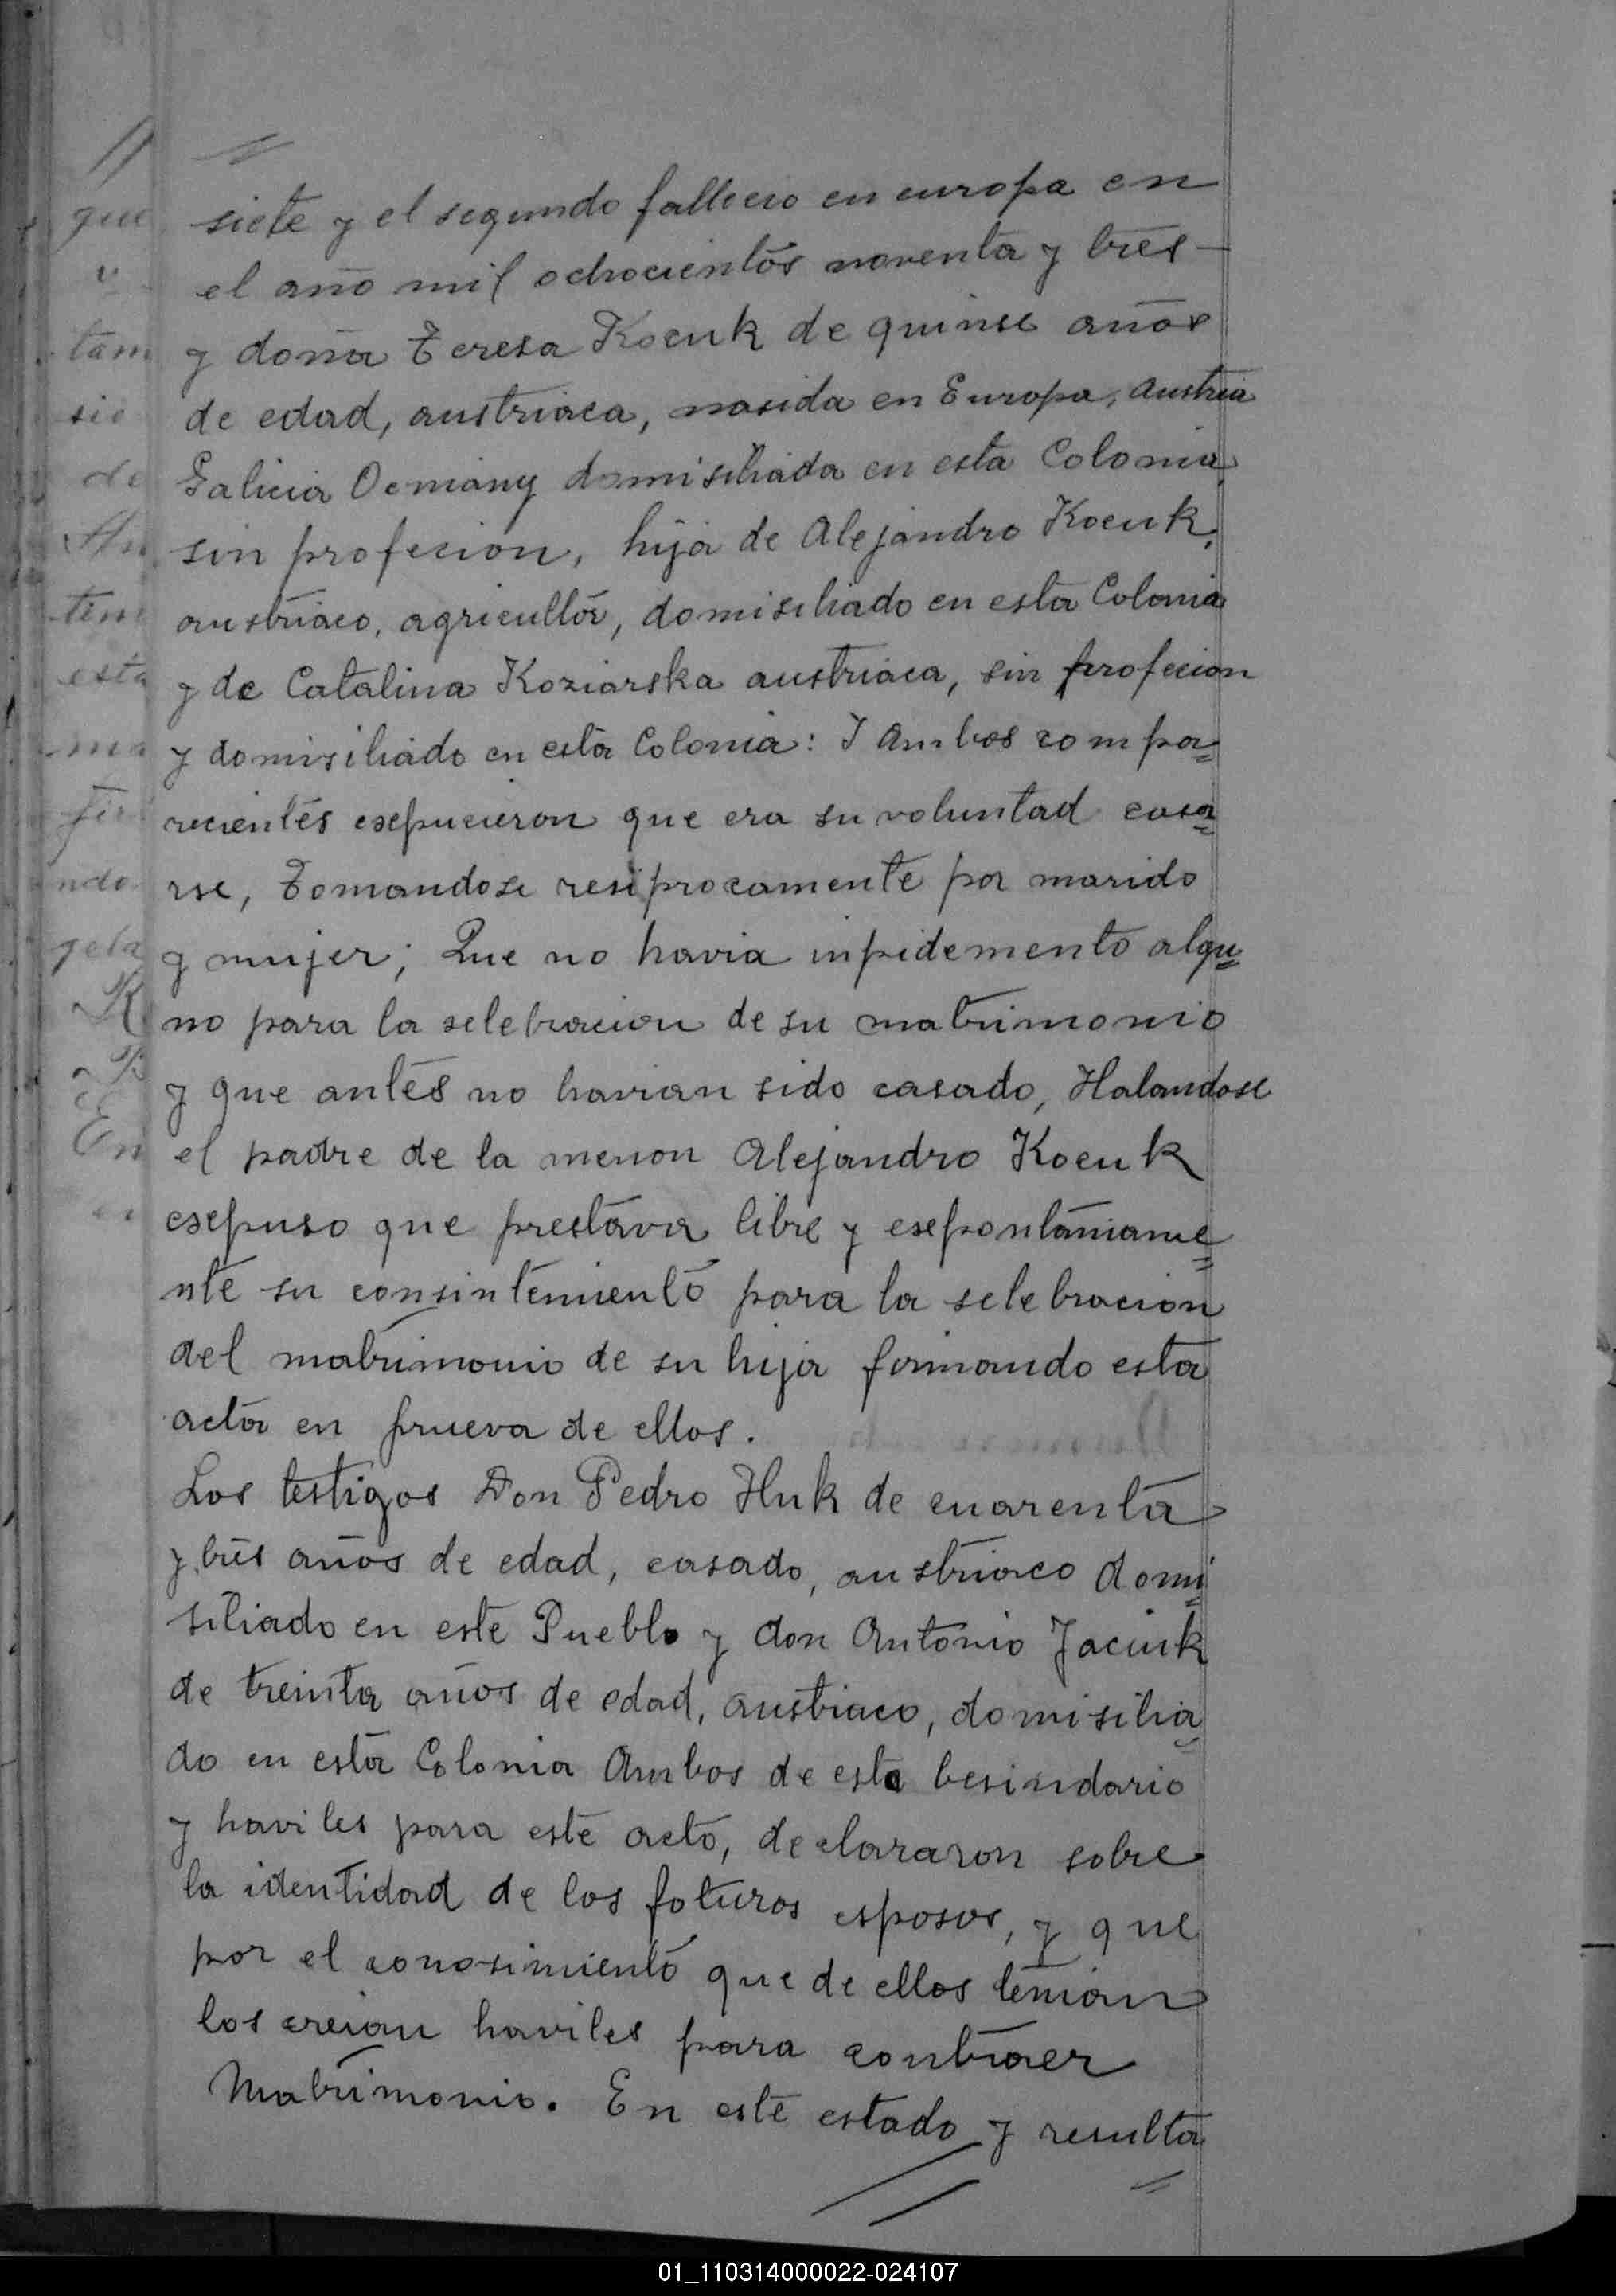 siete y el segundo fallecio en europa en
el año mil ochocientos noventa y tres —
y doña Teresa Kocuk de quinse años
de edad, austriaca, nasida en Europa, Austria
Galicia Ocniany domisiliada en esta Colonia,
sin profecion, hija de Alejandro Kocuk,
austriaco, agricultor, domisiliado en esta Colonia
y de Catalina Koziarska austriaca, sin profecion
y domisiliado en esta Colonia: I Ambos compa=
recientes esepucieron que era su voluntad casa=
rse, Tomandose resiprocamente por marido
y mujer; Que no havia inpidemento algu=
no para la selebracion de su matrimonio
y que antes no havian sido casado, Halandose
el padre de la menon Alejandro Kocuk
esepuso que prestava libre y esepontaniame=
nte su consintemiento para la selebracion
del matrimonio de su hija firmando esta
acta en prueva de ellos.
Los testigos Don Pedro Huk de cuarenta
y tres años de edad, casado, austriaco domi=
siliado en este Pueblo y don Antonio Jaciuk
de treinta años de edad, austriaco, domisilia=
do en esta Colonia Ambos de esta besindario
y haviles para este acto, declararon sobre
la identidad de los foturos esposos, y que
por el conosimiento que de ellos tenian
los creian haviles para contraer
Matrimonio. En este estado y resulta
=
que
tam
sie
de
tim
esta
ma
fir
ndo
En
01_110314000022-024107